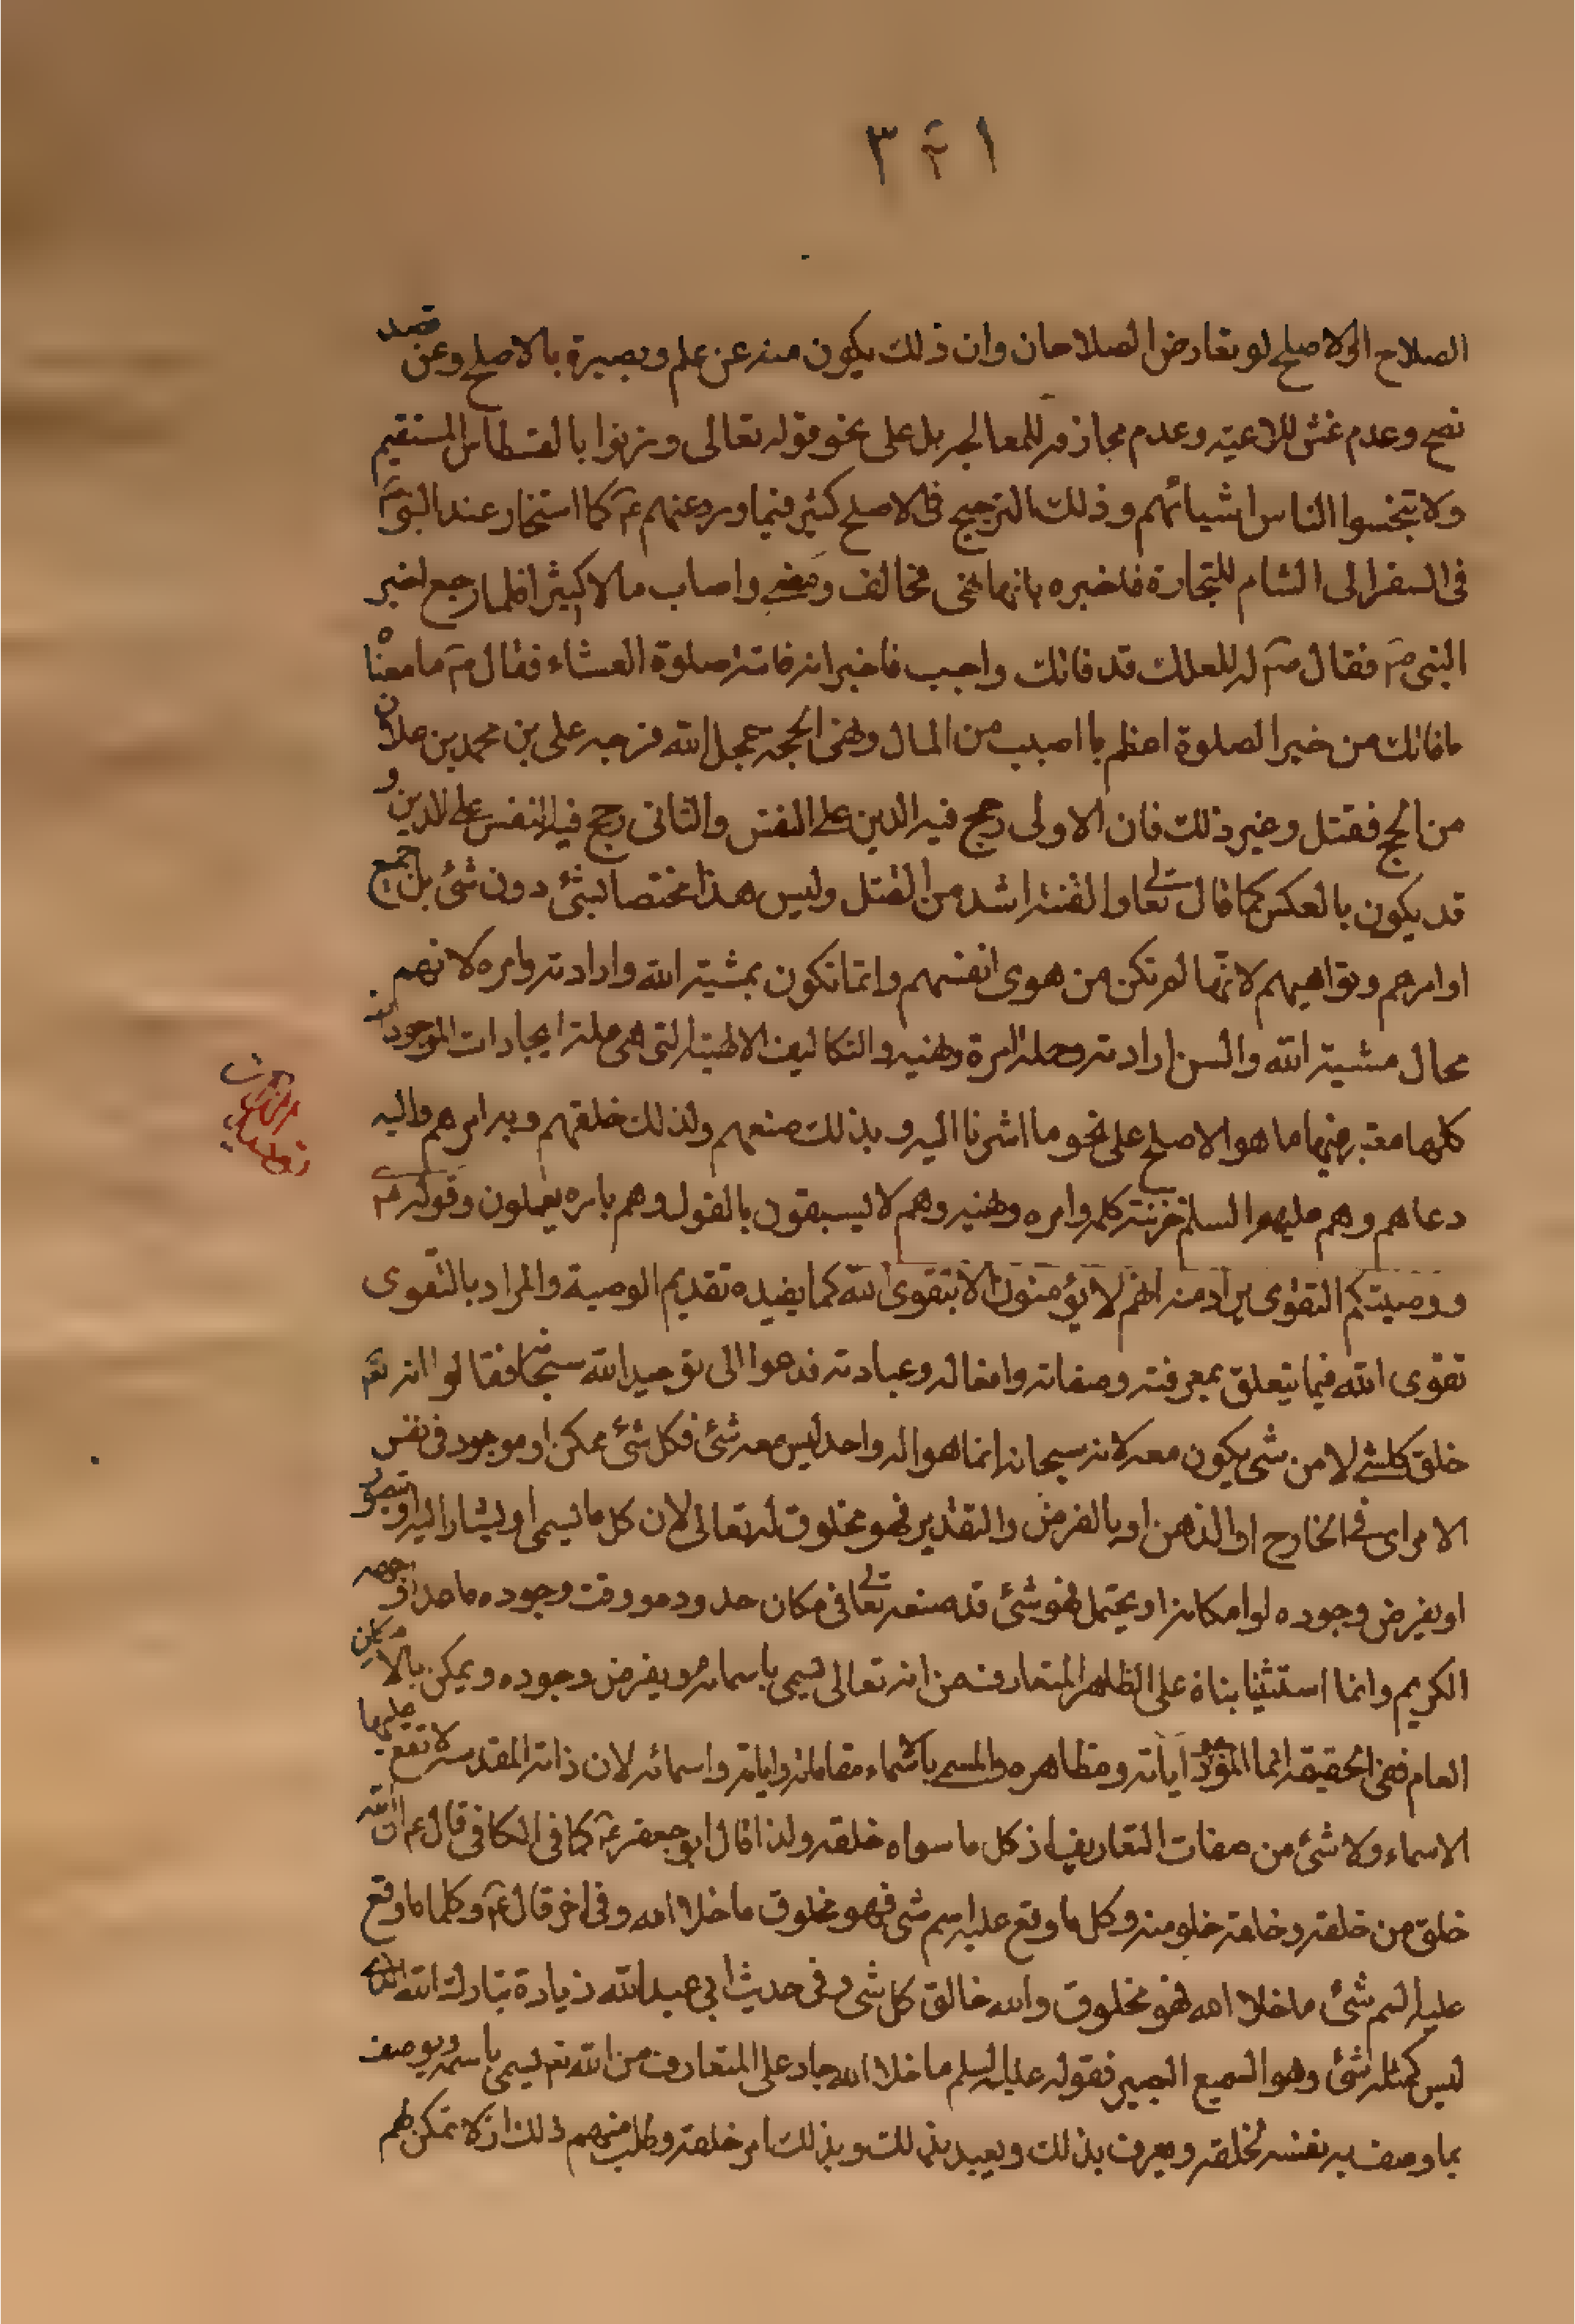 ١ ٢ ٣
الصلاح الى الاصلح لو تعارض الصلاحان وان ذلك يكون منه عن علم وبصيرة بالاصلح وعن قصد
نصح وعدم غش للرعية وعدم مجازفة للمعالجة بل على نحو قوله تعالى وزنوا بالقسطاس المستقيم
ولا تبخسوا الناس اشيائهم وذلك الترجيح فى الاصلح كثير فيما ورد عنهم عم كما استخار عند النبى صم
فى السفر الى الشام للتجارة فاخبره بانها نهى فخالف ومضى واصاب مالا كثيرا فلما رجع اخبر
النبى صم فقال صم له لعلك قد فاتك واجب فاخبر انه فاتته صلوة العشاء فقال صم ما معناه
ما فاتك من خير الصلوة اعظم مما اصبت من المال ونهى الحجة عجل الله فرجه على بن محمد بن علان
من الحج فقتل وغير ذلك فان الاولى رجح فيه الدين على النفس والثانى رجح فيه النفس على الدين و
قد يكون بالعكس كما قال تعالى والفتنة اشد من القتل وليس هذا مختصا بشئ دون شئ بل جميع
اوامرهم ونواهيهم لانها لم تكن من هوى انفسهم وانما تكون بمشية الله وارادته وامره لانهم
محال مشية الله والسن ارادته وحملة امره ونهيه والتكاليف الالهية التى هى علة ايجادات الموجودات
كلها معتبر فيها ما هو الاصلح على نحو ما اشرنا اليه وبذلك صنعهم ولذلك خلقهم وبه امرهم واليه
دعاهم وهم عليهم السلم خزنة كلمه وامره ونهيه وهم لا يسبقون بالقول وهم بامره يعملون وقوله عم
ووصيتكم التقوى يراد منه انهم لا يؤمنون الا بتقوى الله كما يفيده تقديم الوصية والمراد بالتقوى
تقوى الله فيما يتعلق بمعرفته وصفاته وافعاله وعبادته فدعوا الى توحيد الله سبحانه فقالوا انه تعم
خلق كلشئ لا من شئ يكون معه لانه سبحانه انما هو اله واحد ليس معه شئ فكل شئ ممكن او موجود فى نفس
الامر اى فى الخارج او الذهن او بالفرض والتقدير فهو مخلوق له تعالى لان كل ما يسمى او يشار اليه او يتصور
او يفرض وجوده او امكانه او يحتمل فهو شئ قد صنعه تعالى فى مكان حدوده ووقت وجوده ما عدا وجهه
الكريم وانما استثنينا بناء على الظاهر المتعارف من انه تعالى يسمى باسمائه ويفرض وجوده ويمكن بالامكان
العام ففى الحقيقة انما آياته ومظاهره والمسمى بالاسماء مقاماته واياته واسمائه لان ذاته المقدسة لا تقع عليها
الاسماء ولا شئ من صفات التعاريف اذ كل ما سواه خلقه ولذا قال ابو جعفر عم كما فى الكافى قال عم ان الله
خلق من خلقه وخلقه خلو منه وكل ما وقع عليه اسم شئ فهو مخلوق ما خلا الله وفى اخر قال عم وكلما وقع
عليه اسم شئ ما خلا الله فهو مخلوق والله خالق كل شئ وفى حديث ابى عبدالله زيادة تبارك الله الذى
ليس كمثله شئ وهو السميع البصير فقوله عليه السلم ما خلا الله جاد على المتعارف من الله تعم يسمى باسمه ويوصف
بما وصف به نفسه لخلقه ويعرف بذلك ويعبد بذلك وبذلك امر خلقه وطلب منهم ذلك اذ لا تمكن لهم